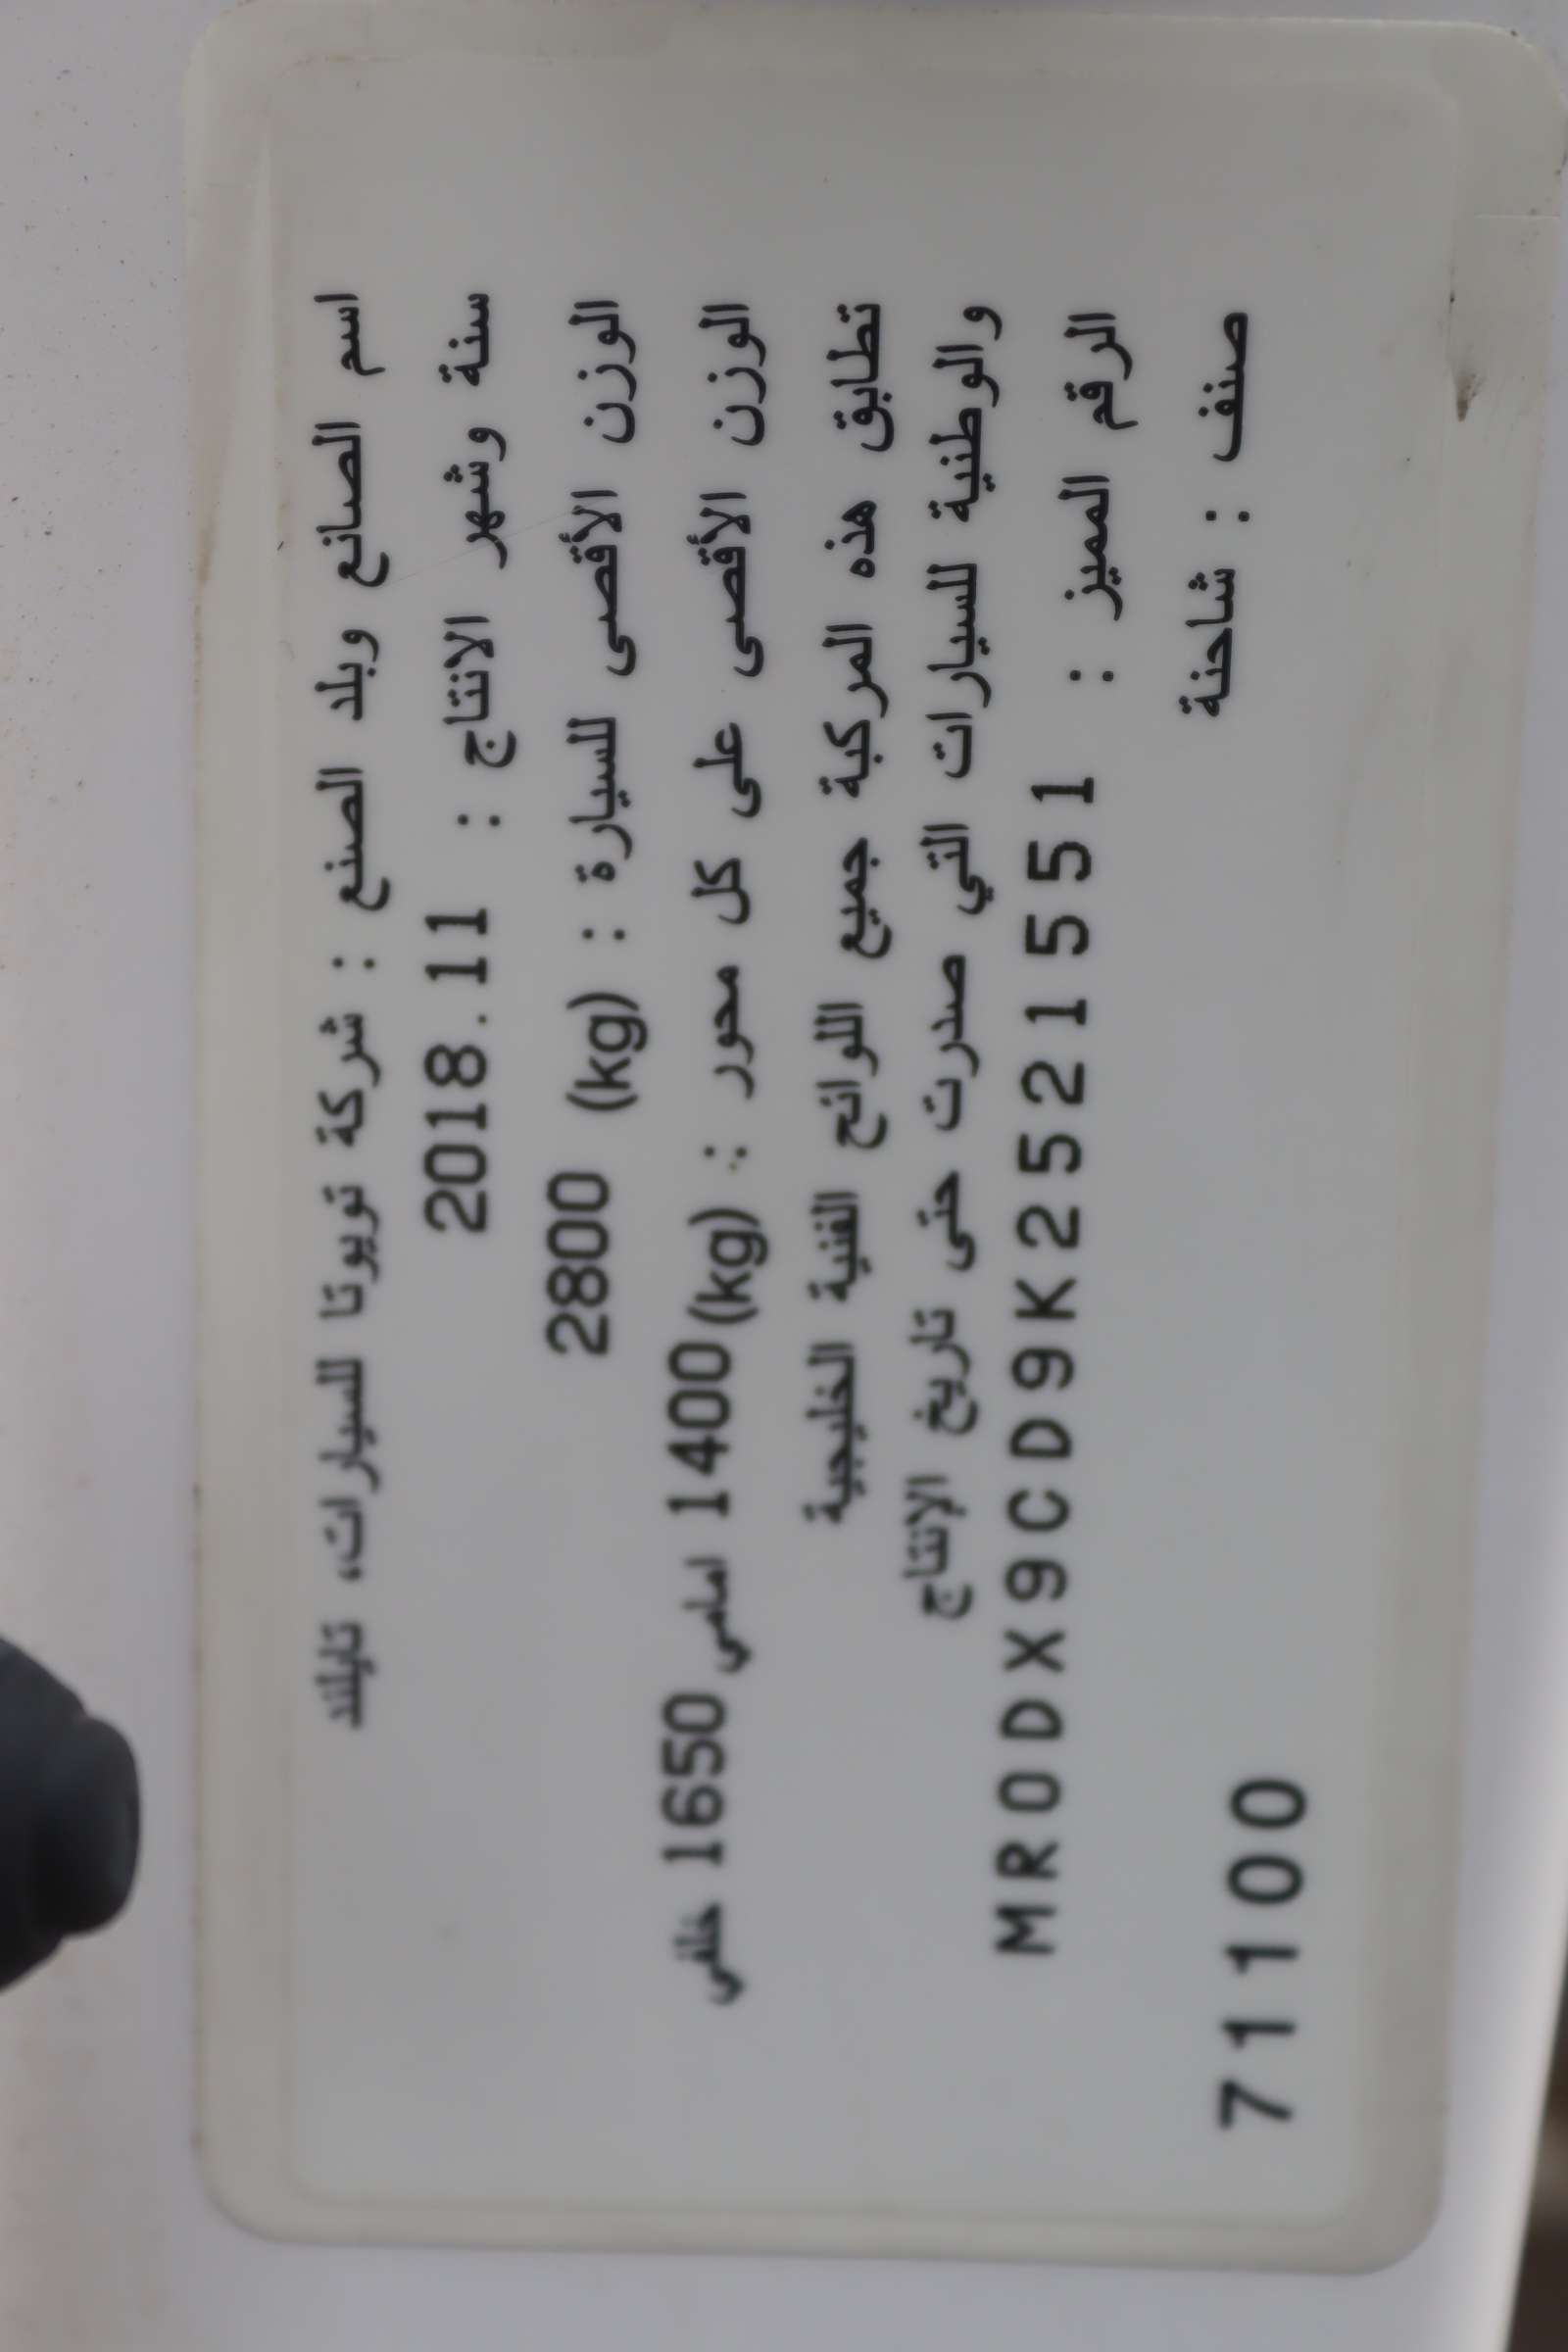 اسم الصانع وبلد الصنع : شركة تويوتا للسيارات، تايلند
سنة وشهر الانتاج : 2018.11
الوزن الأقصى للسيارة : (kg) 2800
الوزن الأقصى على كل محور : (kg) 1400 امامي 1650 خلفى
تطابق هذه المركبة جميع اللوائح الفنية الخليجية
والوطنية للسيارات التي صدرت حتى تاريخ الإنتاج
الرقم المميز : MR0DX9CD9K2521551
صنف : شاحنة
71100